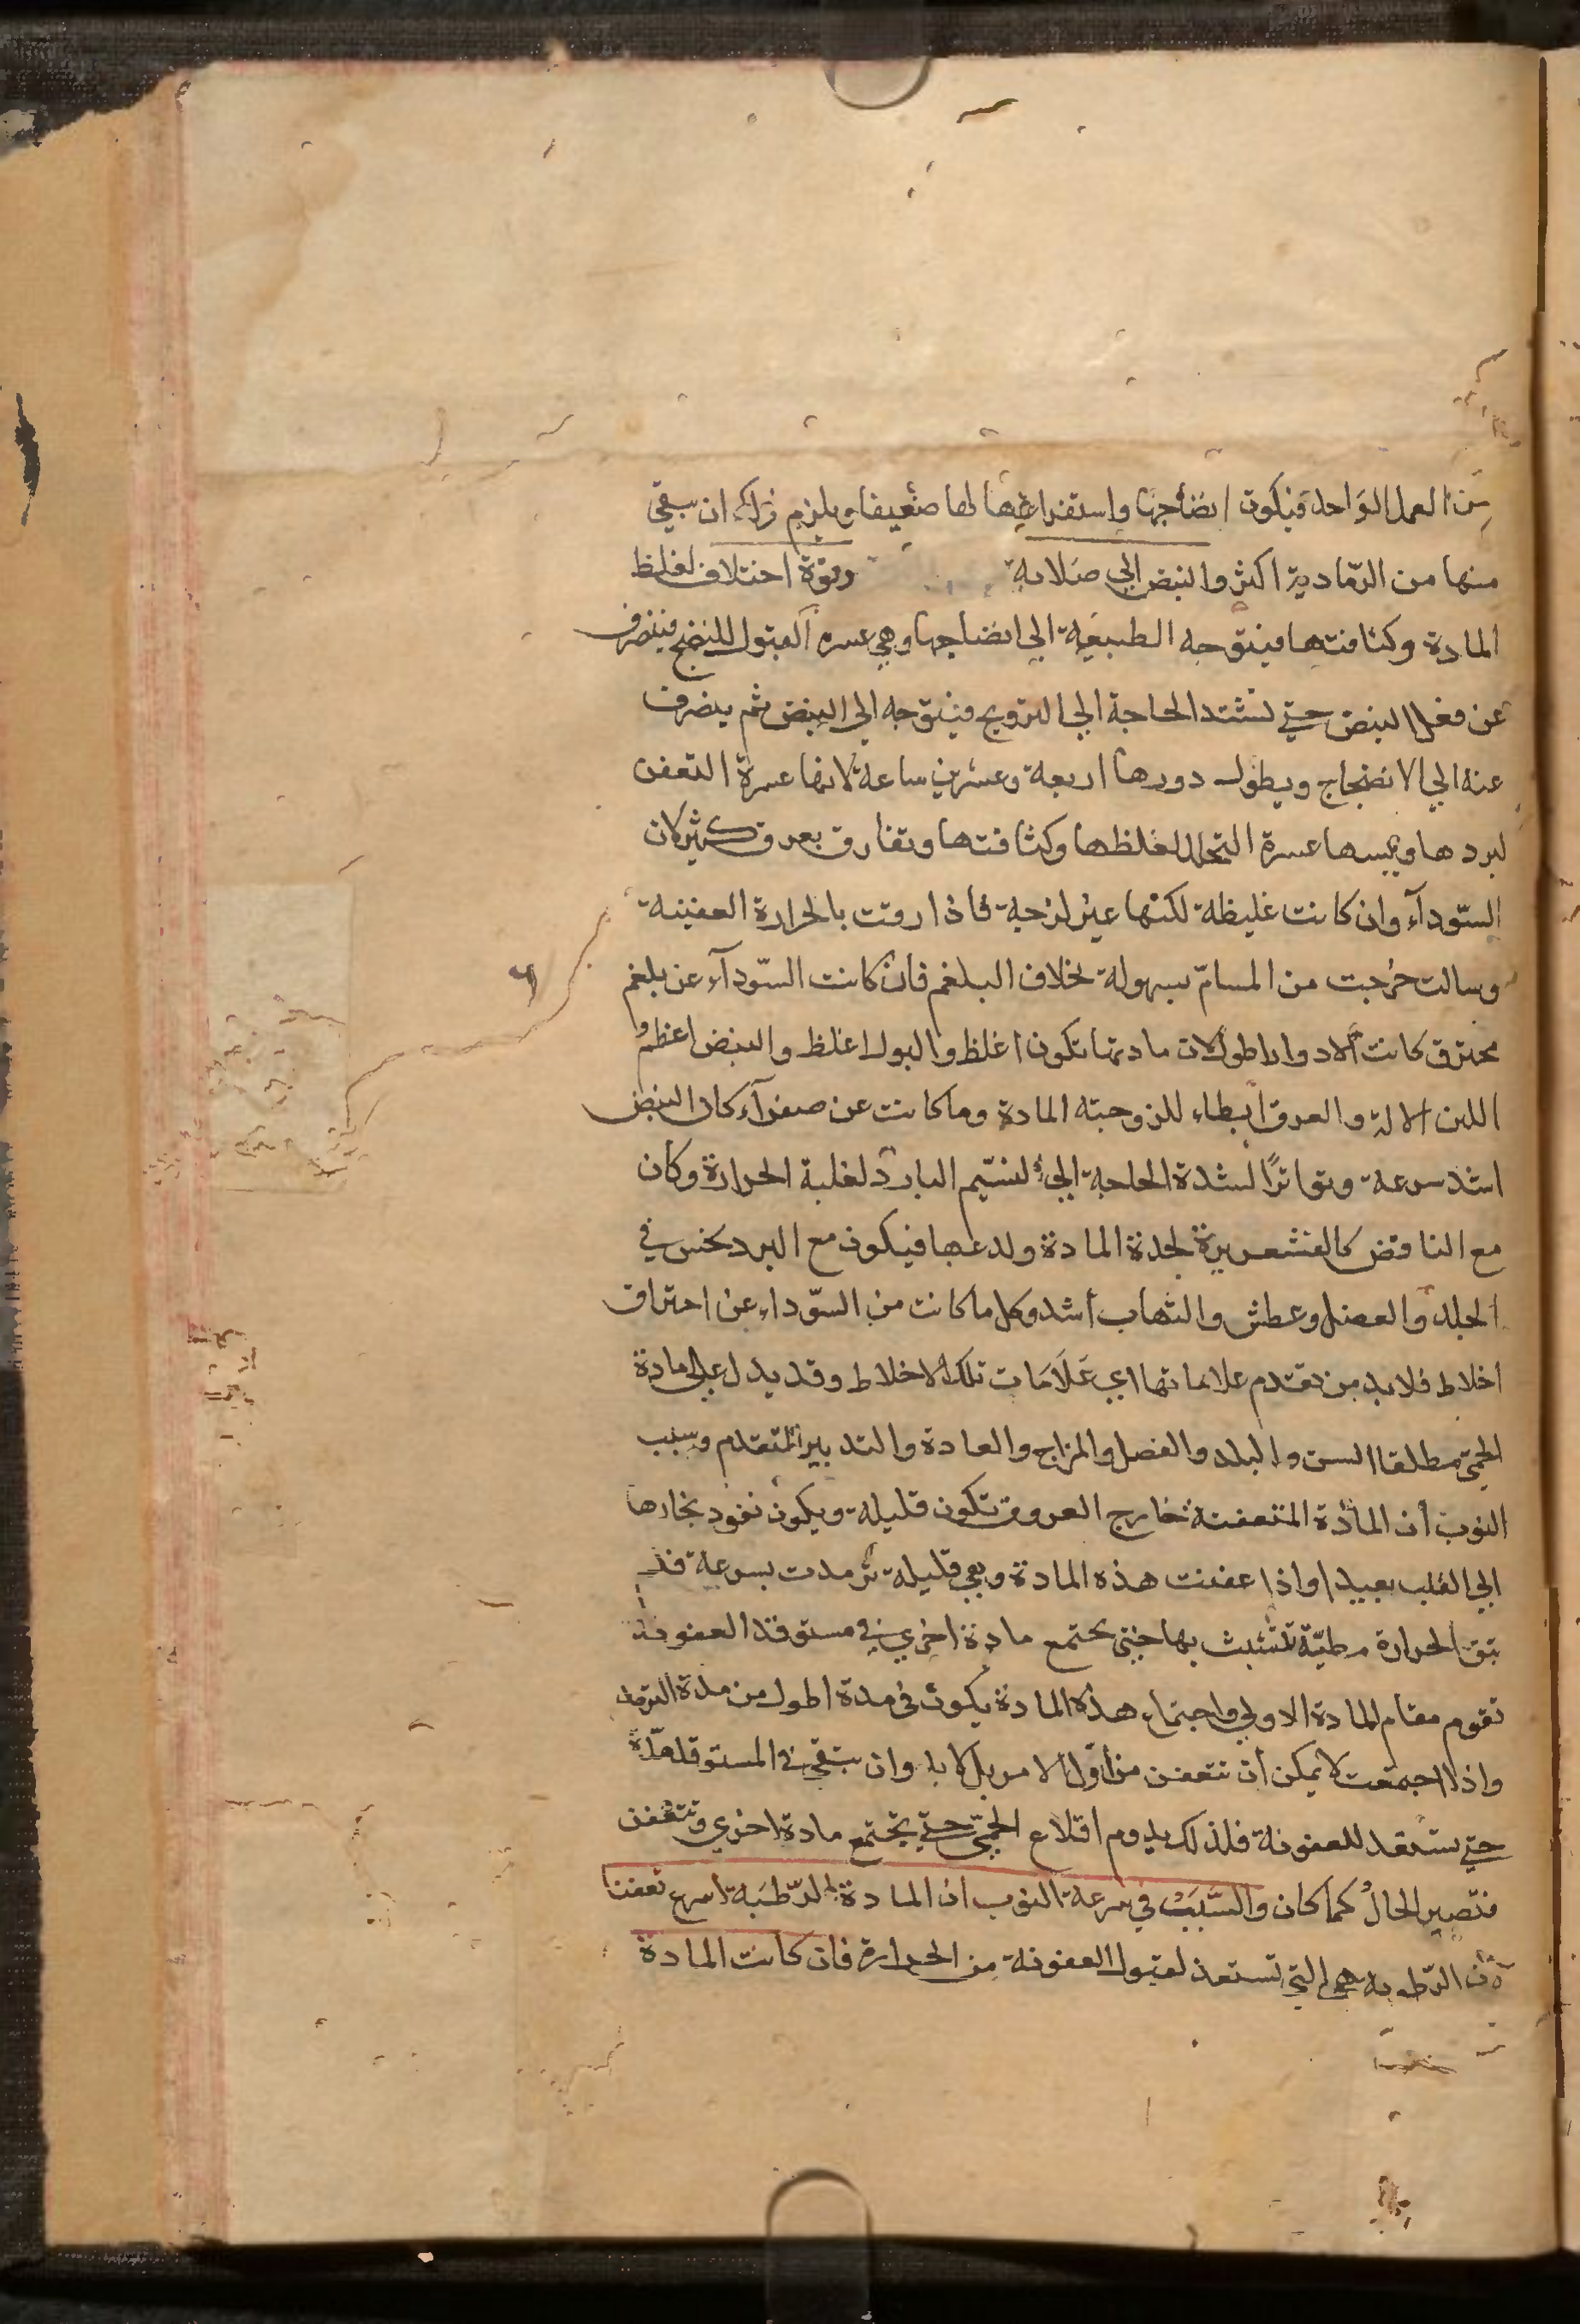 من العمل الواحد فيكون انضاجها واستفراغها لها ضعيفا ويلزم ذلك ان يبقي
منها من الرّمادية اكثر والنبض الي صلابة وقوة اختلاف لغلظ
المادة وكثافتها فيتوجه الطبيعة الي انضاجها وهي عسرة القبول للنضج فينصرف
عن فعل النبض حتي تشتد الحاجة الي الترويح فيتوجه الي النبض ثم ينصرف
عنه الي الانضاج ويطول دورها اربعة وعشرين ساعة لانها عسرة التعفن
لبردها ويبسها عسرة التحلل لغلظها وكثافتها وتفارق بعرق كثير لان
السّودآء وان كانت غليظة لكنها غير لزجة فاذا رقت بالحرارة العفنية
وسالت خرجت من المسامّ بسهولة بخلاف البلغم فان كانت السّودآء عن بلغم
محترق كانت الادوار اطول لان مادتها تكون اغلظ والبول اغلظ والنبض اعظم و
اللين الالة والعرق أبطاء للزوجة المادة وما كانت عن صفرآء كان النبض
اشد سرعة وتواترًا لشدة الحاجة الي النسيم البارد لغلبة الحرارة وكان
مع النافض كالقشعريرة لحدة المادة ولدعها فيكون مع البرد نخس في
الجلد والعضل وعطش والتهاب أشد وكل ما كانت من السّوداء عن احتراق
اخلاط فلابد من تقدم علاماتها اي عَلَامَات تلك الاخلاط وقد يدل علي مادة
الحمّي مطلقا السن والبلد والفصل والمزاج والعادة والتدبير المتقدم وسبب
النوب أن المادة المتعفنة خارج العروق تكون قليلة ويكون نفود بخارها
الي القلب بعيدا واذا عفنت هذه المادة وهي قليلة ترمدت بسرعة فلم
تبق الحرارة مطيّة تتشبث بها حتي يجتمع مادة اخري في مستوقد العفونة
تقوم مقام المادة الاولي واجتماع هذه المادة يكون في مدة اطول من مدة الترمد
واذا اجتمعت لا يمكن أن تتعفن من اوّل الامر بل لابد وان تبقي في المستوقد مدّة
حتي تستعد للعفونة فلذلك يدوم اقلاع الحمّي حتي يجتمع مادة اخري وتتعفن
فتصير الحالُ كما كان والسَّبَبُ في سرعة النوب ان المادة الرّطبَة اسرع تعفنا
لان الرّطوبة هي التي تستعد لقبول العفونة من الحرارة فان كانت المادة